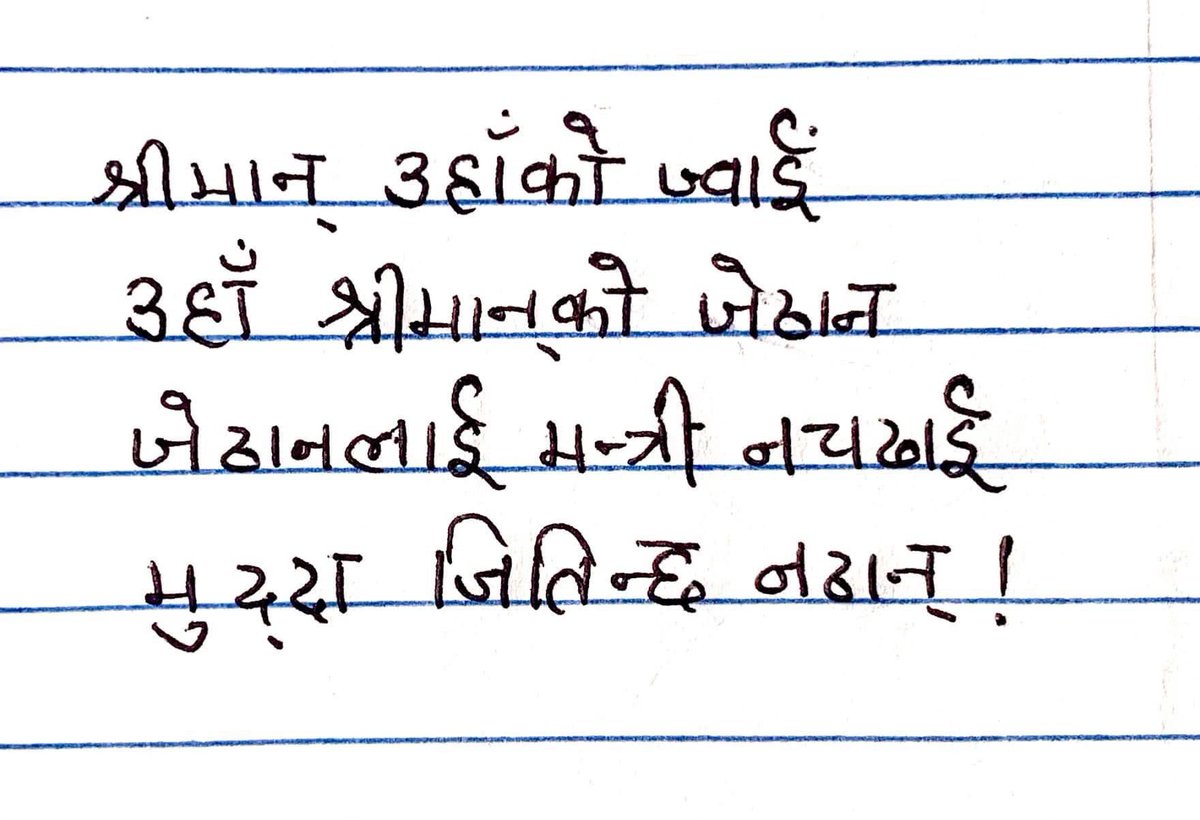 श्रीमान् उहाँको ज्वाईं
उहाँ श्रीमान्को जेठान
जेठानलाई मन्त्री नचढाई
मुद्दा जितिन्छ नठान् !